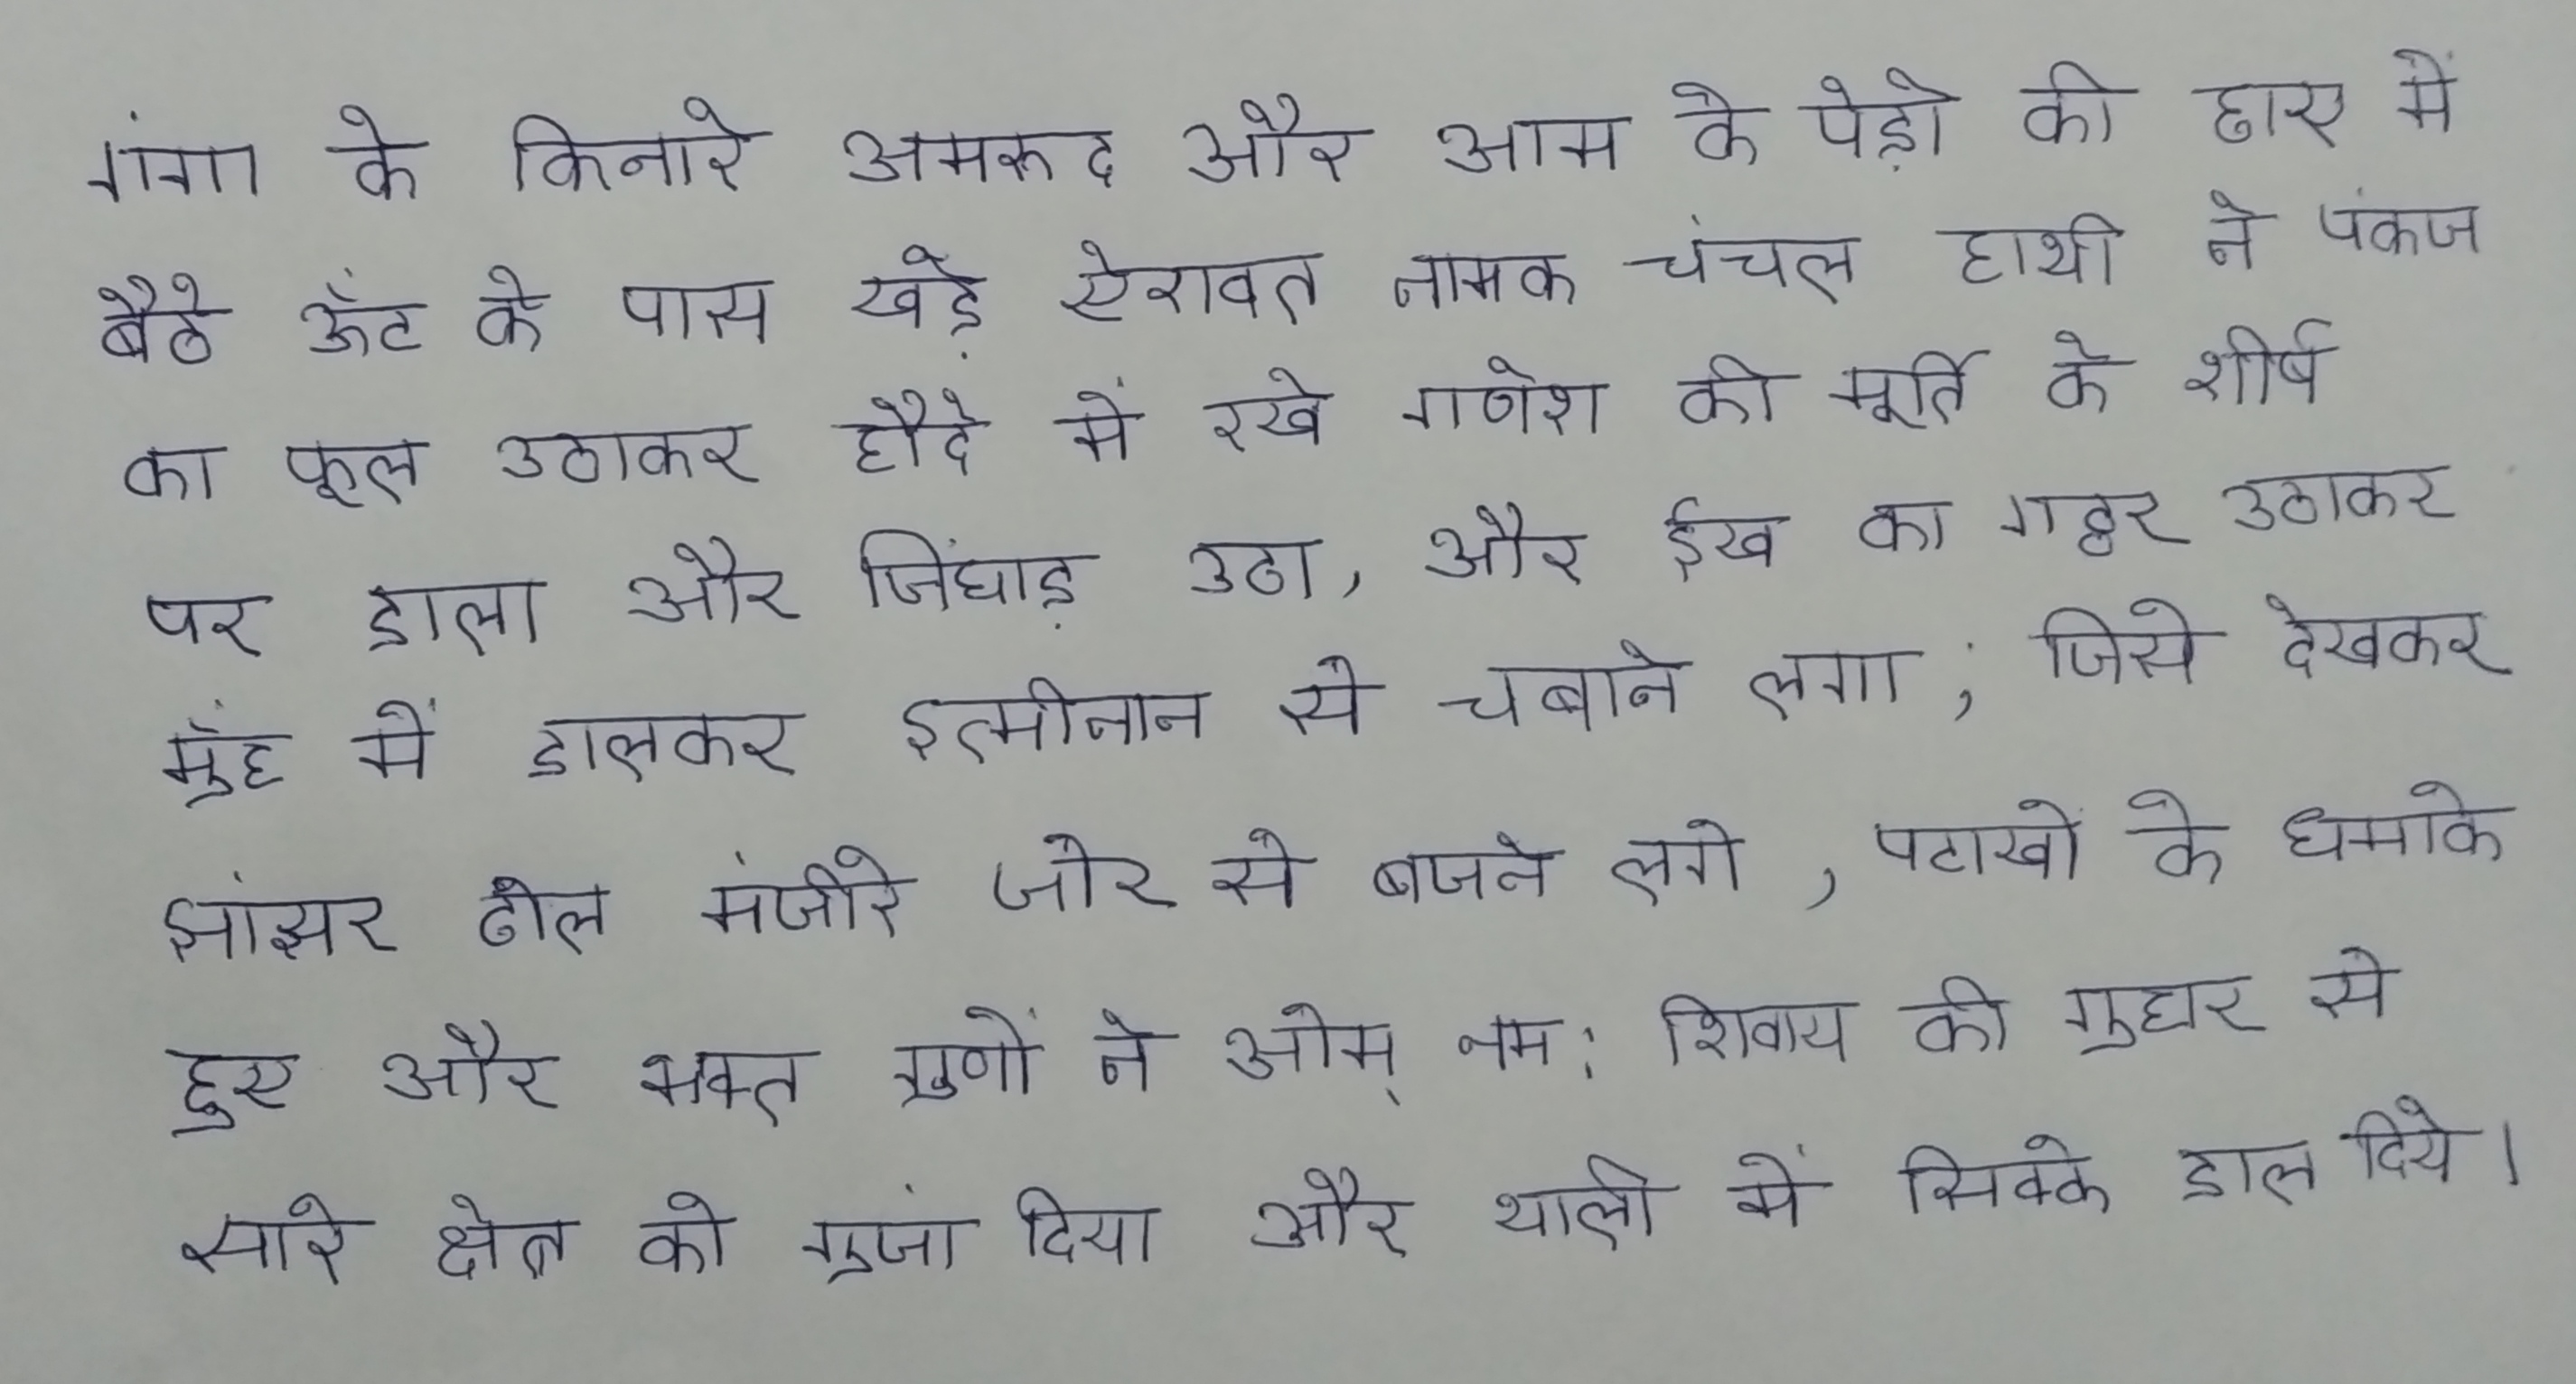 गंगा के किनारे अमरूद और आम के पेड़ो की छाए में
बैठे ऊँट के पास खड़े ऐरावत नामक चंचल हाथी ने पंकज
का फूल उठाकर हौदे में रखे गणेश की मूर्ति के शीर्ष
पर डाला और जिंघाड़ उठा, और ईख का गठ्ठर उठाकर
मुँह में डालकर इत्मीनान से चबाने लगा; जिसे देखकर
झांझर ढोल मंजीरे जोर से बजने लगे, पटाखों के धमाके
हुए और भक्त गुणों ने ओम् नम: शिवाय की गुहार से
सारे क्षेत्र को गुजां दिया और थाली में सिक्के डाल दिये।